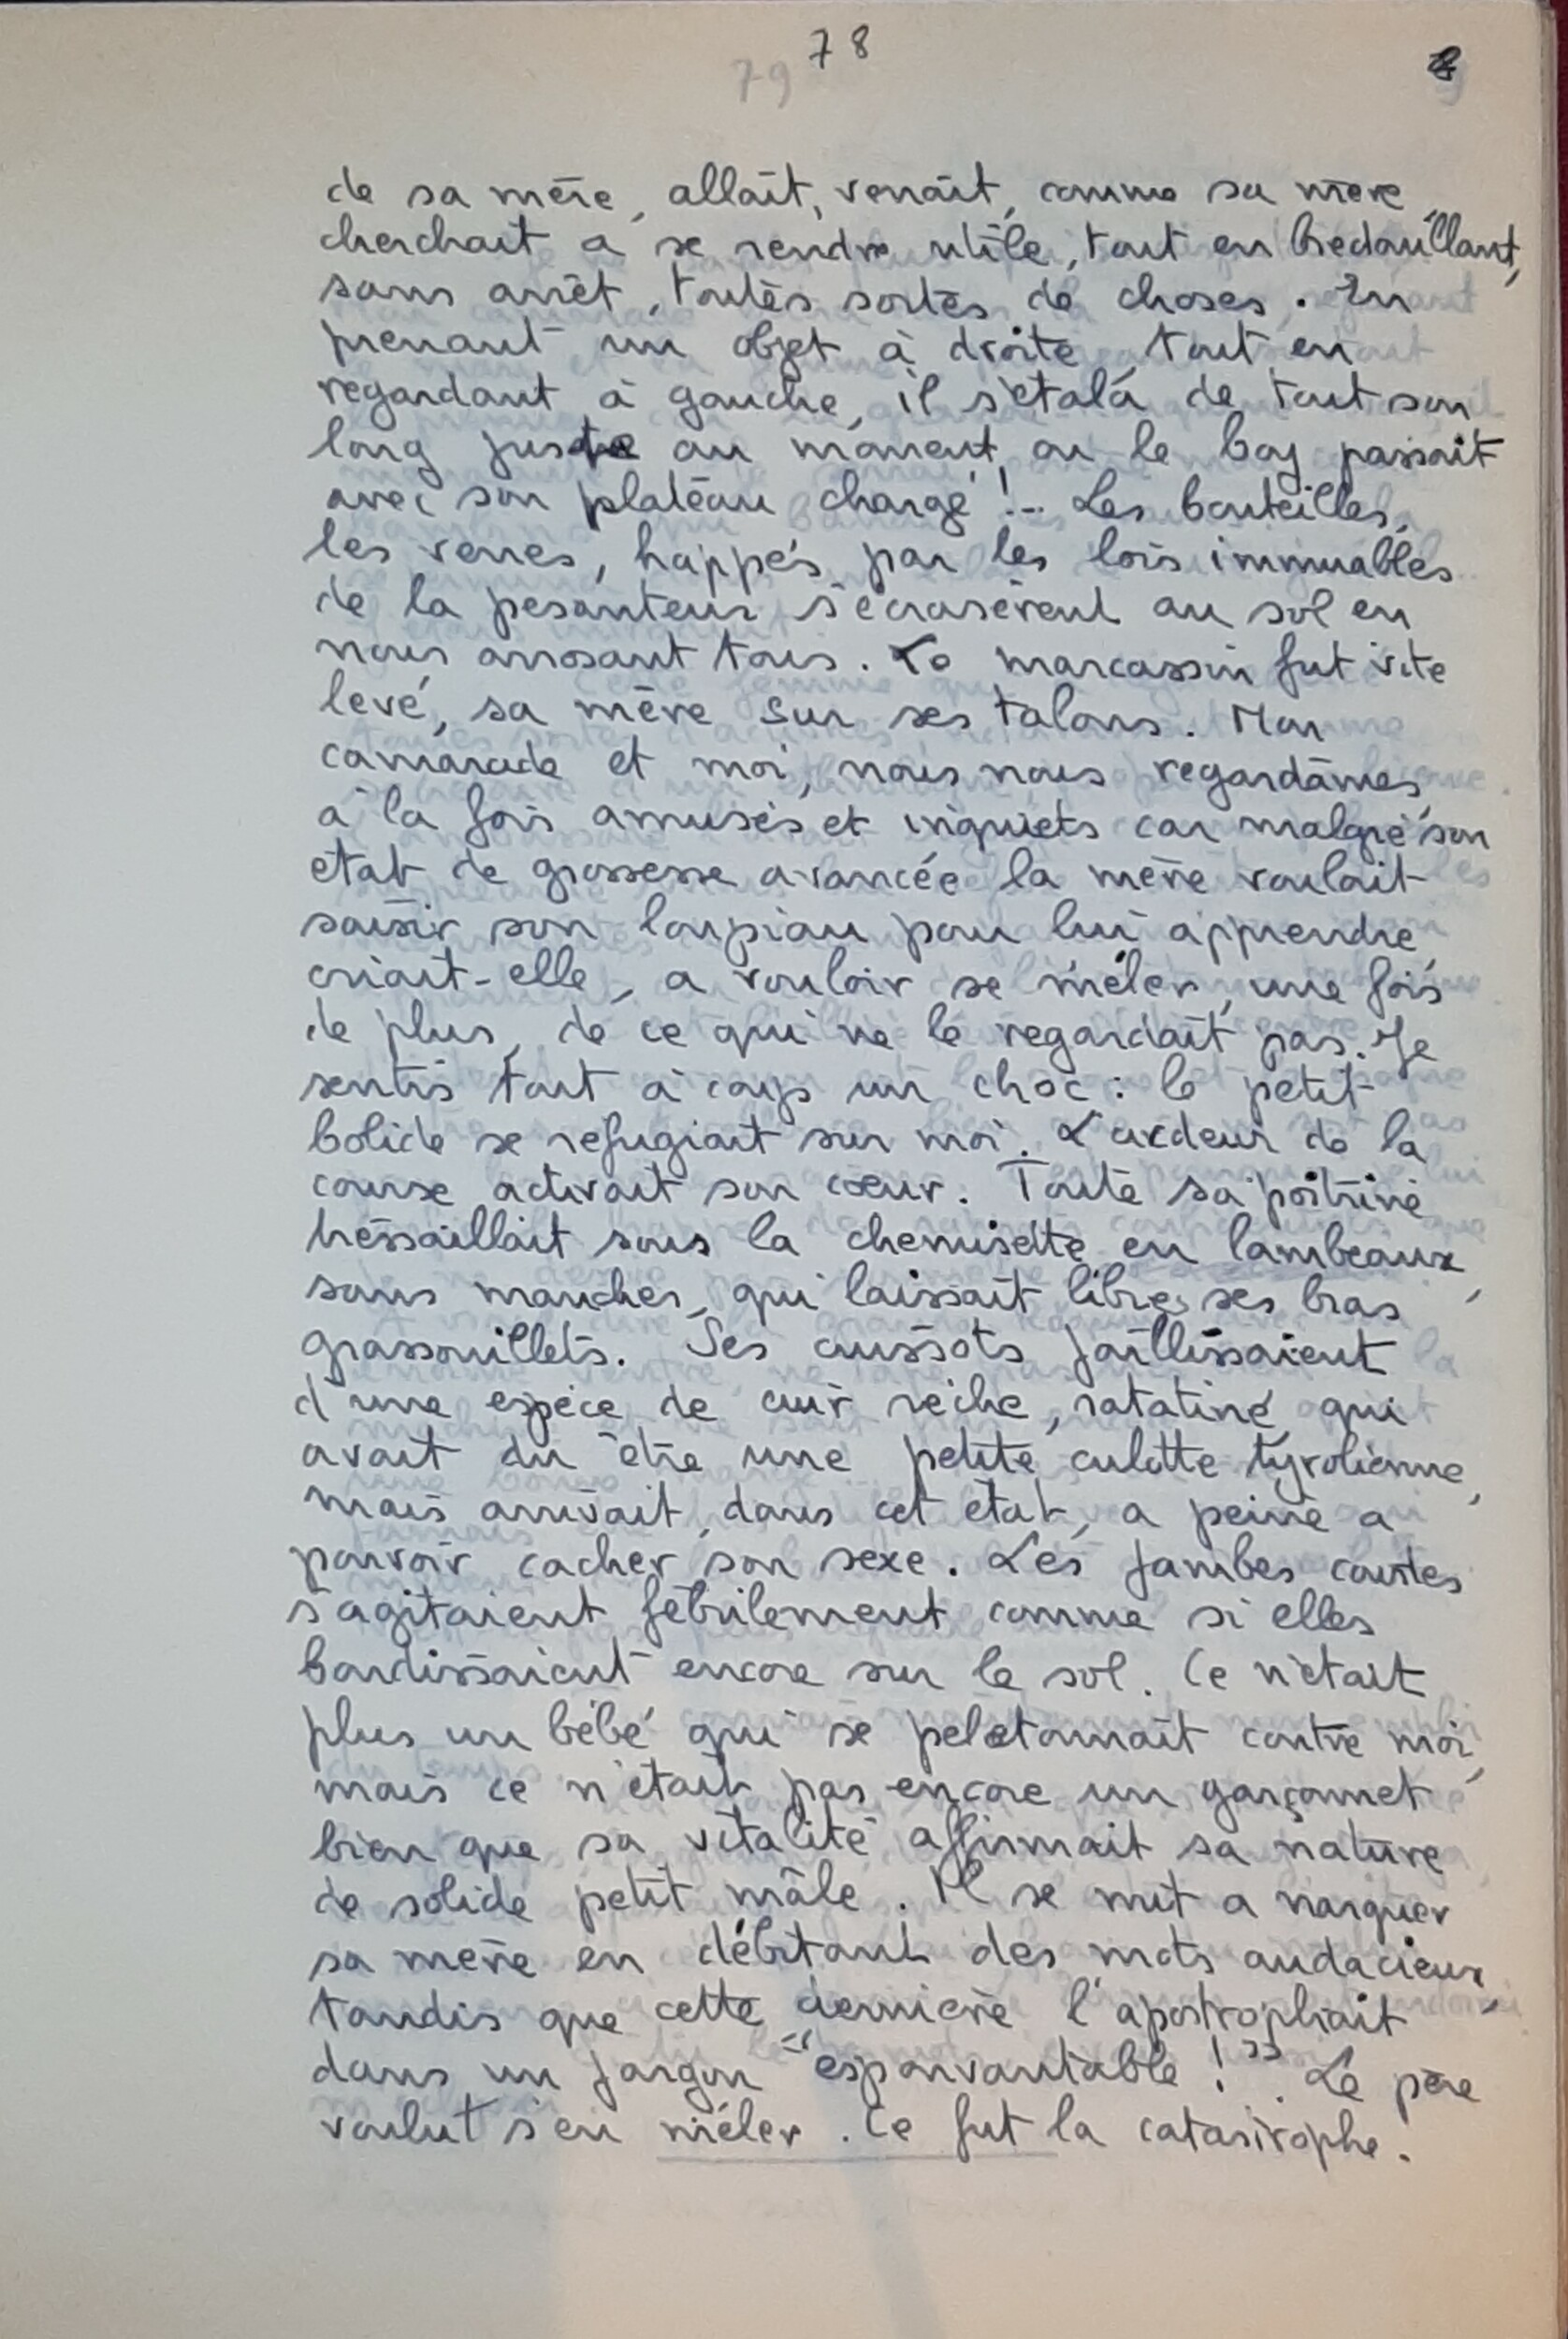 79 78 8
de sa mère, allait, venait, comme sa mère,
cherchait a se rendre utile, tout en bredouillant,
sans arrêt, toutes sortes de choses. En
prenant un objet à droite, tout en
regardant à gauche, il s'étala de tout son
long juste au moment, ou le boy passait
avec son plateau chargé !.. Les bouteilles,
les verres, happés par les lois immuables
de la pesanteur s'écrasèrent au sol en
nous arrosant tous. Le marcassin fut vite
levé, sa mère sur ses talons. Mon
camarade et moi, nous nous regardâmes,
à la fois amusés et inquiets car malgré son
état de grossesse avancée la mère voulait
saisir son loupiau pour lui apprendre,
criait-elle, a vouloir se mêler, une fois
de plus, de ce qui ne le regardait pas. Je
sentis tout à coup un choc : le petit
bolide se refugiait sur moi. L'ardeur de la
course activait son cœur. Toute sa poitrine
tressaillait sous la chemisette en lambeaux,
sans manches, qui laissait libres ses bras
grassouillets. Ses cuissots jaillissaient
d'une espèce de cuir rêche, ratatiné, qui
avait du être une petite culotte tyrolienne,
mais arrivait, dans cet état, a peine a
pouvoir cacher son sexe. Les jambes courtes
s'agitaient fébrilement comme si elles
bondissaient encore sur le sol. Ce n'était
plus un bébé qui se pelotonnait contre moi,
mais ce n'était pas encore un garçonnet
bien que sa vitalité affirmait sa nature
de solide petit mâle. Il se mit a narguer
sa mère en débitant des mots audacieux,
tandis que cette dernière l'apostrophait
dans un jargon "esponvantable !". Le père
voulut s'en mêler. Ce fut la catastrophe.